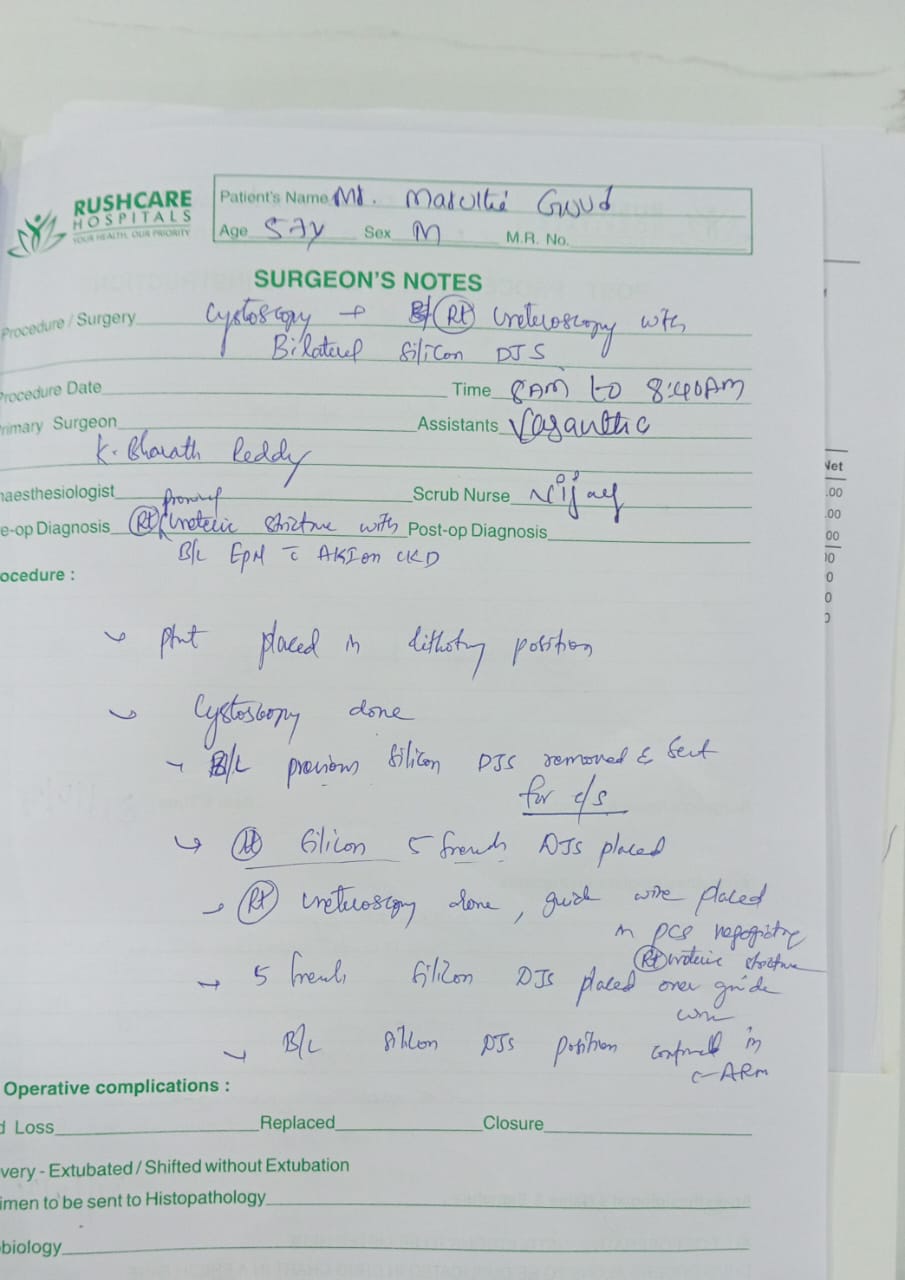 RUSHCARE
HOSPITALS
YOUR HEALTH, OUR PRIORITY
Patient's Name Mr.
Age 57y Sex M M.R. No.
SURGEON'S NOTES
Procedure / Surgery Cystoscopy + Rt Ureteroscopy with
Bilateral Silicon DJS
rocedure Date Time 8AM to 8:40AM
rimary Surgeon Assistants
K. Bharath Reddy
naesthesiologist Scrub Nurse
e-op Diagnosis Rt Ureteric Stricture with Post-op Diagnosis
B/L EPN c̄ AKI on CKD
ocedure :
placed in lithotomy position
Cystoscopy done
- B/L previous Silicon DJS removed & sent
for c/s
Silicon 5 french DJS placed
Rt Ureteroscopy done, guide wire placed
in PCS
Rt ureteric stricture
5 french Silicon DJS placed over guide
wire
B/L Silicon DJS position confirmed in
C-ARM
Operative complications :
d Loss Replaced Closure
very - Extubated / Shifted without Extubation
imen to be sent to Histopathology
biology
Net
.00
.00
00
00
0
0